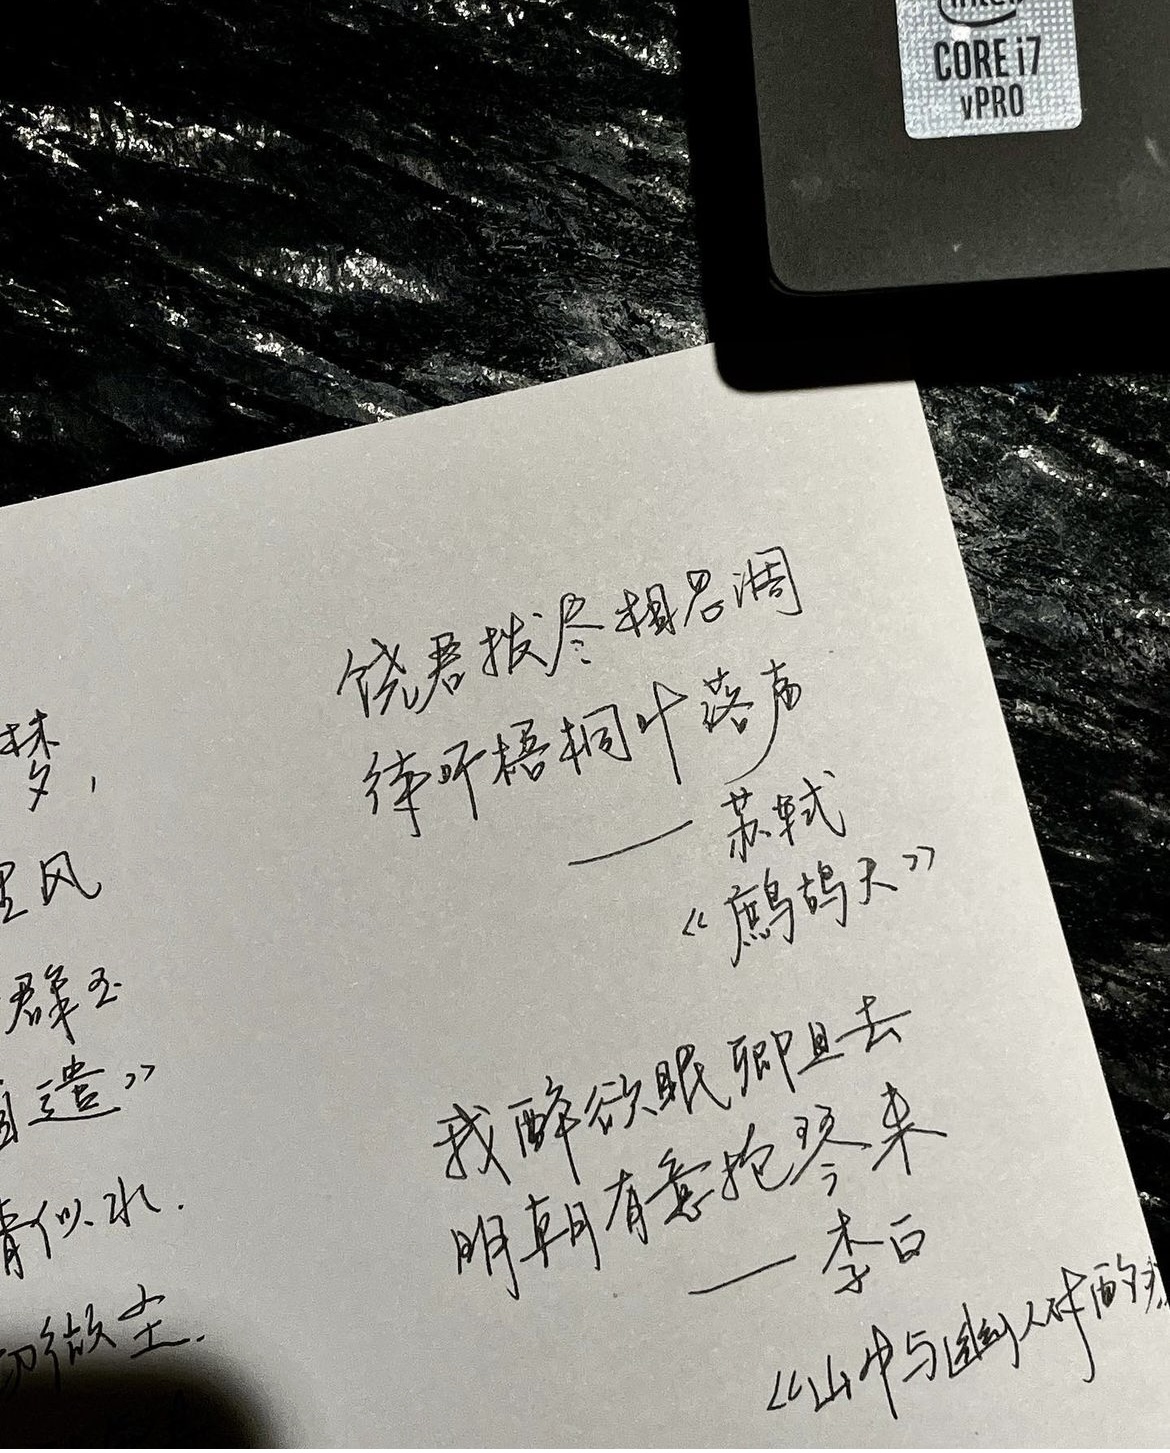 intel
CORE i7
vPRO
饶君拨尽相思调
待听梧桐叶落声
——苏轼
《鹧鸪天》
我醉欲眠卿且去
明朝有意抱琴来
——李白
《山中与幽人对酌
梦，
里风
群玉
遣》
清似水.
微尘.